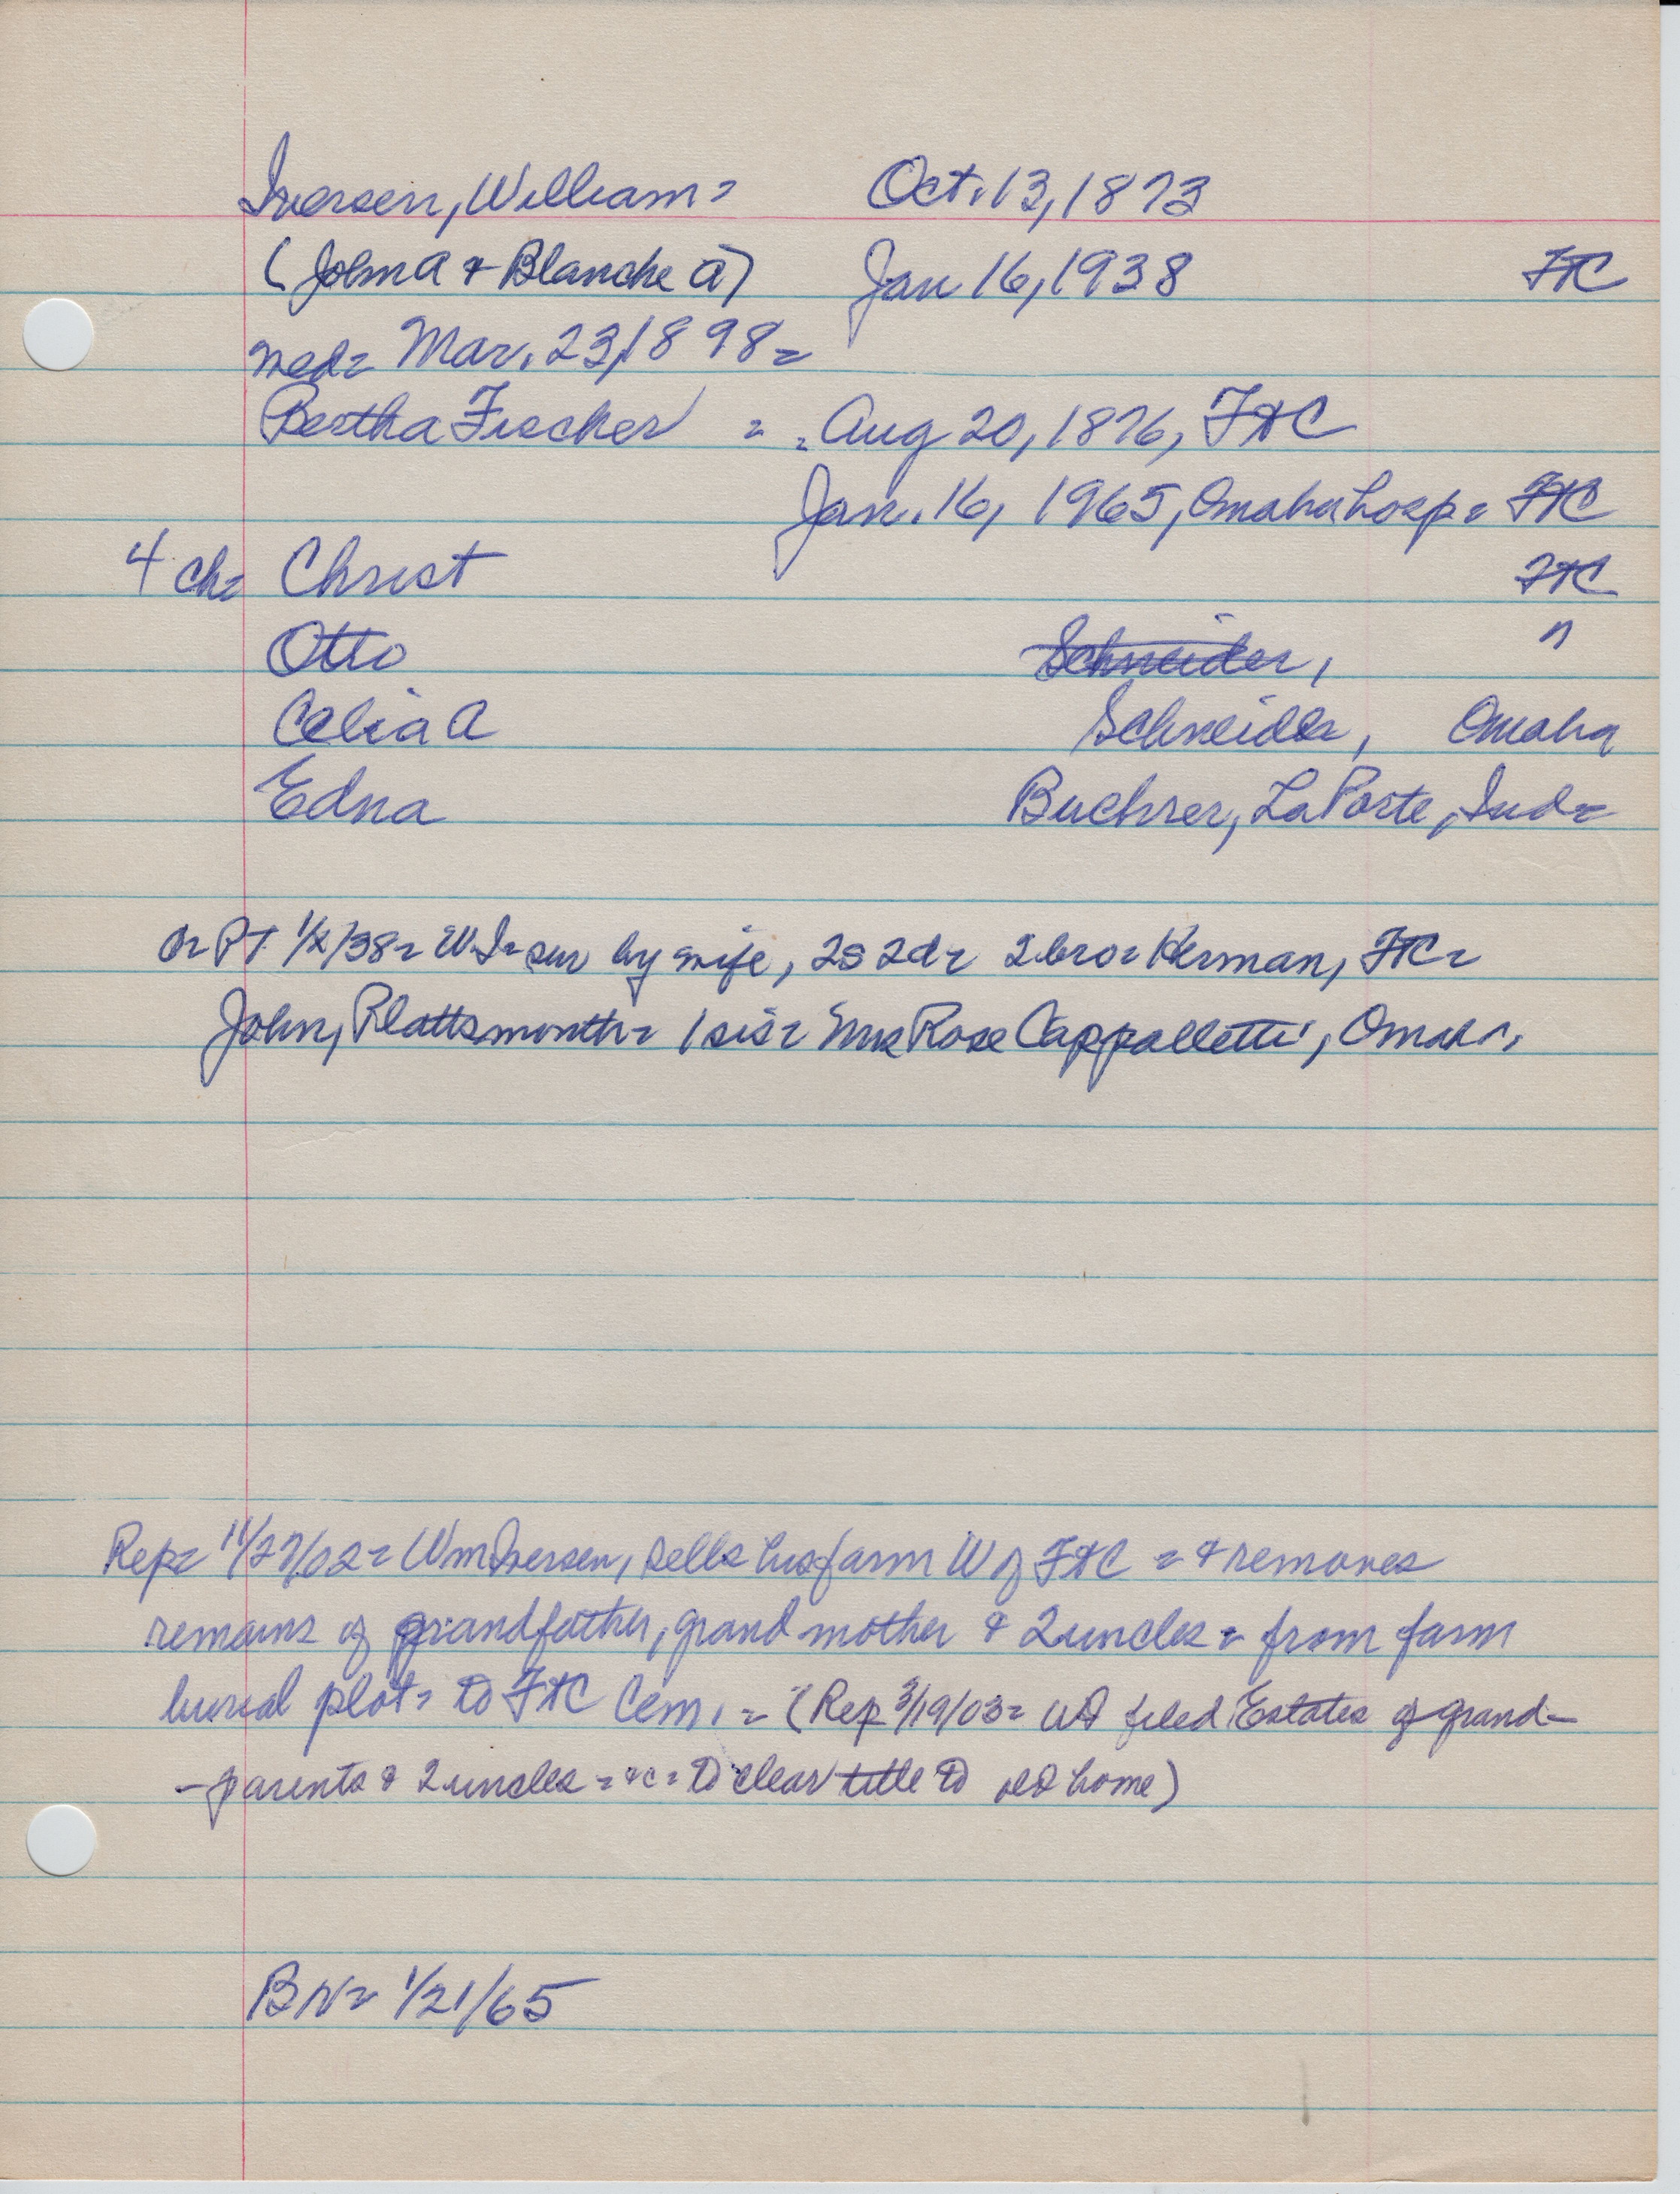 Iversen, William = Oct. 13, 1873
(John A & Blanche A) Jan 16, 1938 FtC
med= Mar. 23, 1898=
Bertha Fischer = = Aug 20, 1876, FtC
Jan. 16, 1965, Omaha hosp= FtC
4 ch= Christ FtC
Otto Schneider, "
Celia A Schneider, Omaha
Edna Buchrer, LaPorte, Ind=
PT /38= WI= sur by wife, 2s 2d= 2 bro= Herman, FtC=
John, Plattsmouth= 1 sis= Mrs Rose Cappalletti, Omaha,
Rep= 11/27/02= Wm Iversen, sells his farm W of FtC = & removes
remains of grandfather, grandmother & 2 uncles = from farm
burial plot= to FtC Cem. = (Rep 3/19/03= filed Estates of grand-
-parents & 2 uncles = &c= to clear title to old home)
BN= 1/21/65